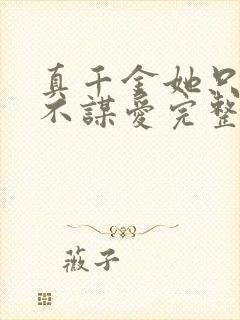 真千金她只
不謀愛完整
薇子